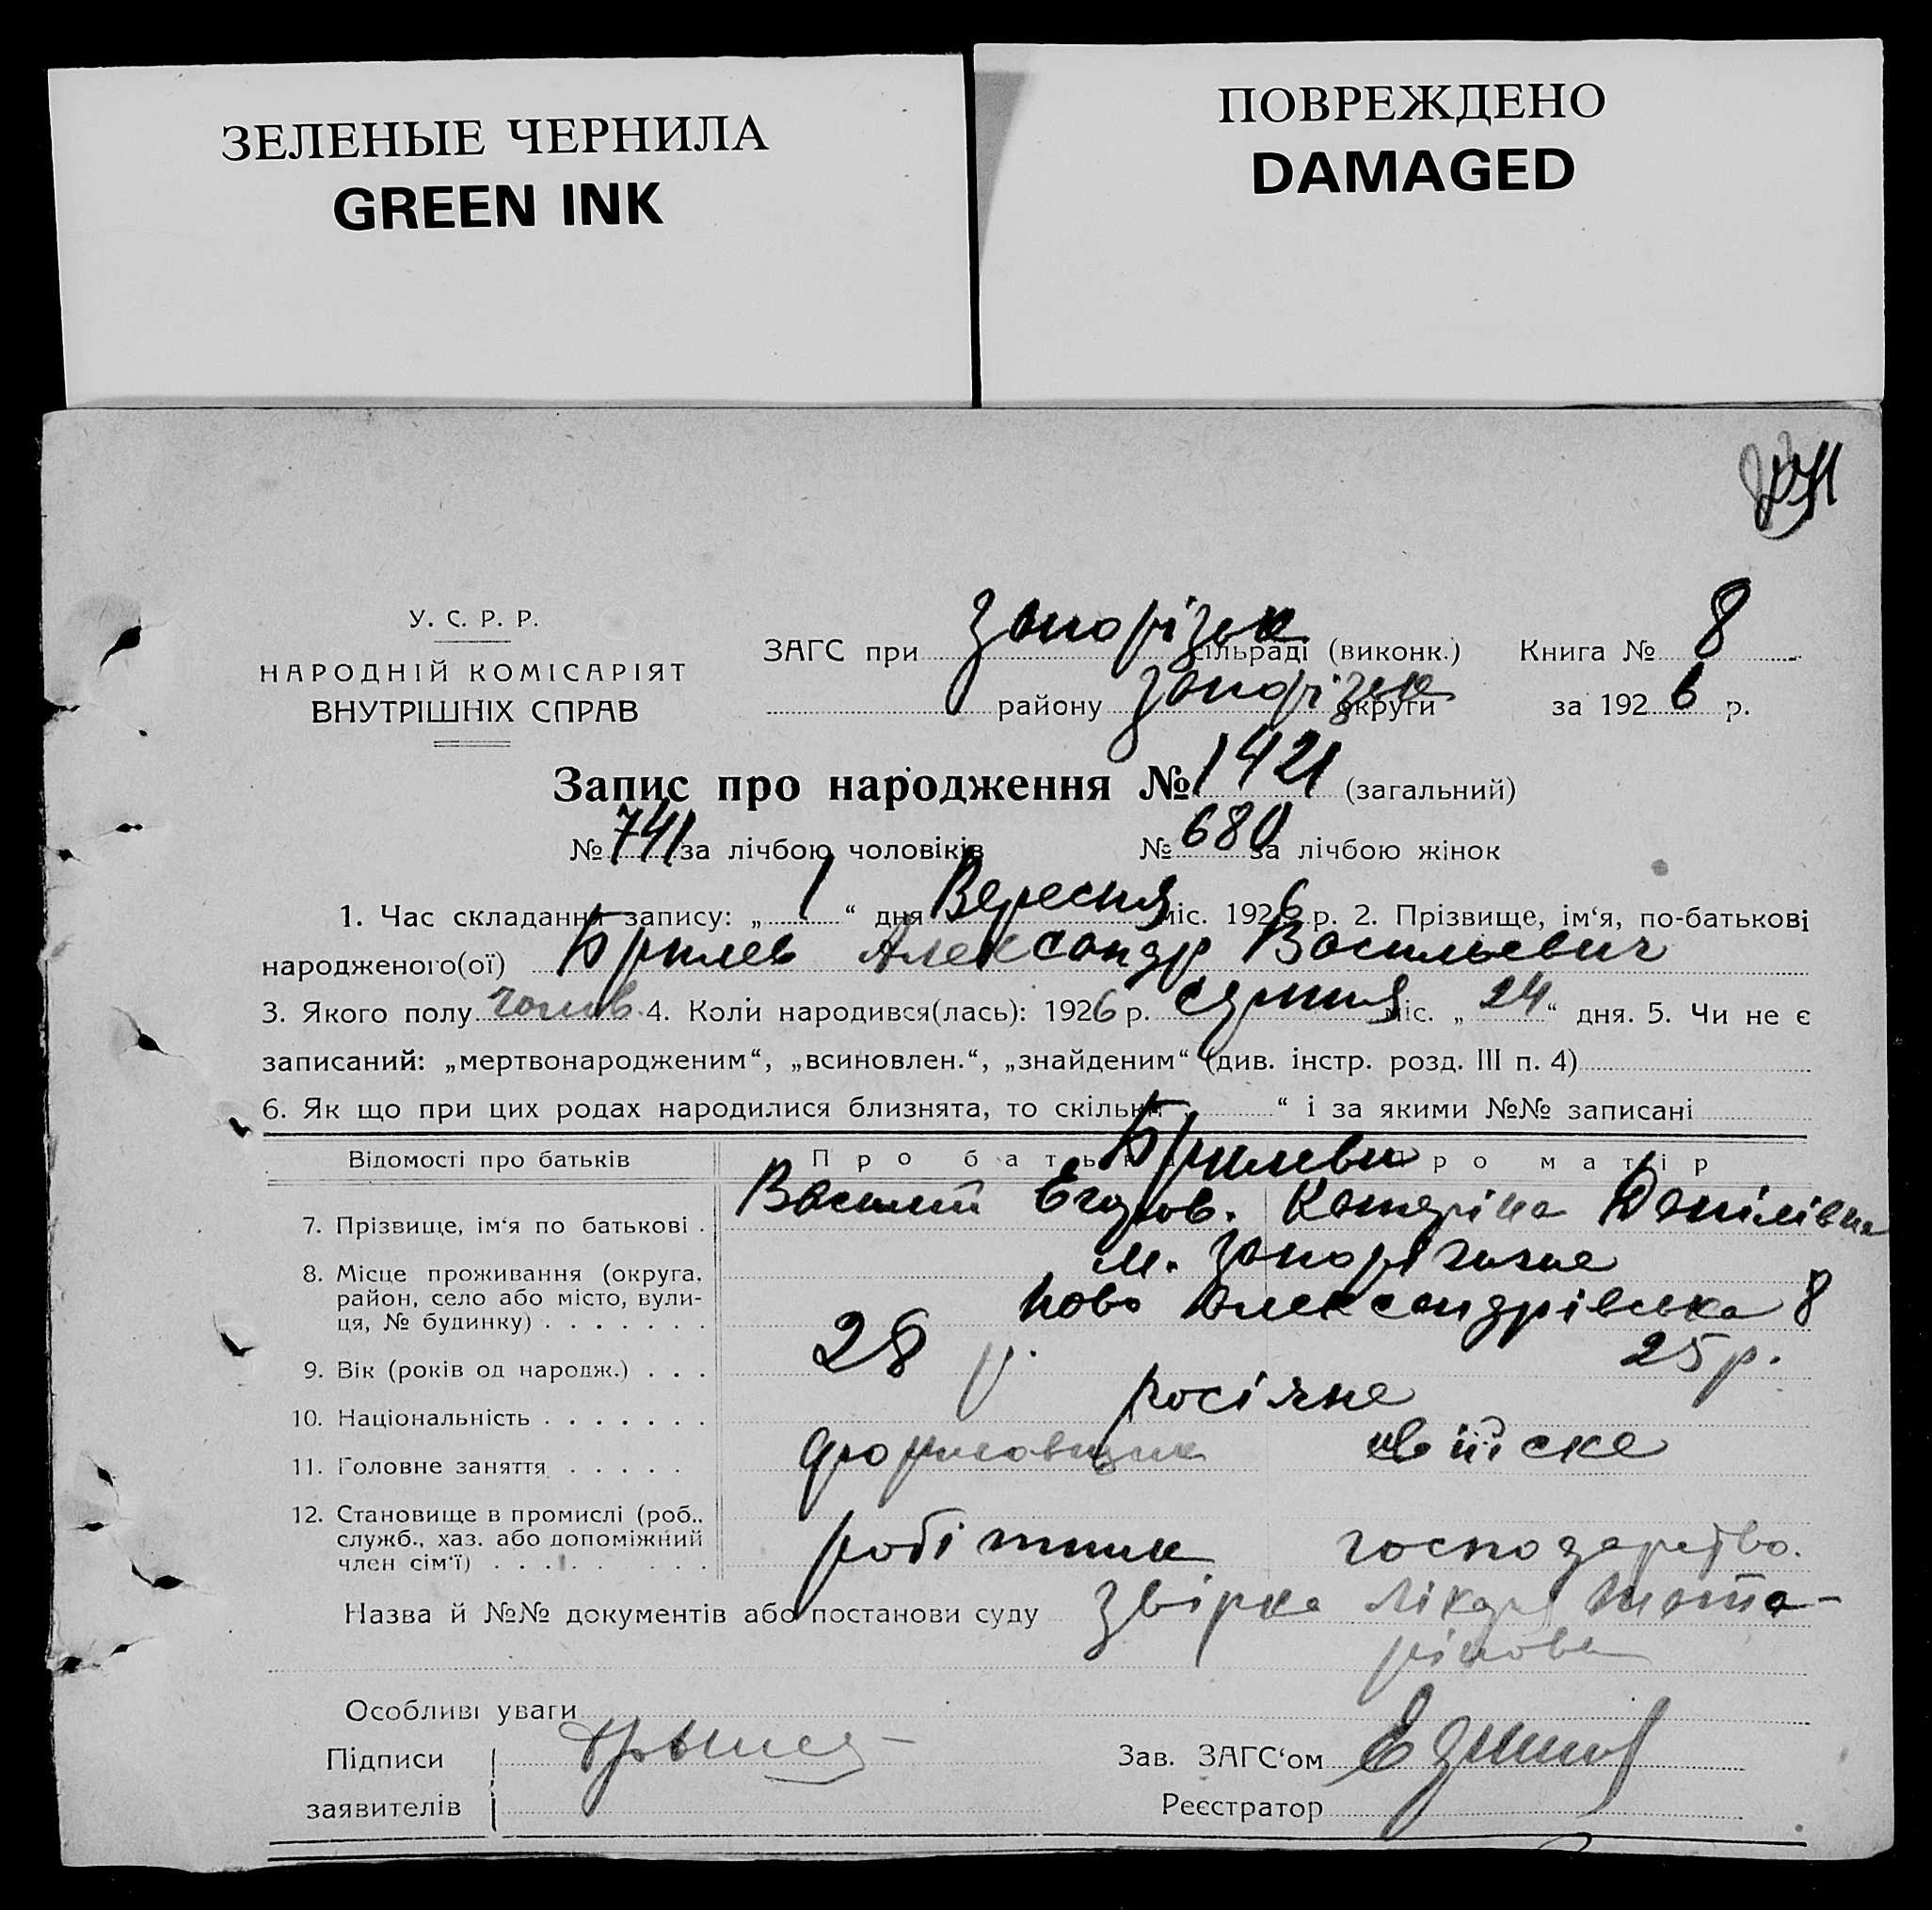 ЗЕЛЕНЫЕ ЧЕРНИЛА
GREEN INK
ПОВРЕЖДЕНО
DAMAGED
У. С. Р. Р.
НАРОДНІЙ КОМІСАРІЯТ
ВНУТРІШНІХ СПРАВ
ЗАГС при Запорізьк сільраді (виконк.) Книга № 8
району Запорізьк округи за 1926 р.
Запис про народження № 1421 (загальний)
№ 741 за лічбою чоловіків № 680 за лічбою жінок
1. Час складання запису: „ 1 “ дня Вересня міс. 1926 р. 2. Прізвище, ім‘я, по-батькові
народженого(ої) Брилев Александр Васильевич
3. Якого полу чолов. 4. Коли народився(лась): 1926 р. серпня міс. „ 24 “ дня. 5. Чи не є
записаний: „мертвонародженим“, „всиновлен.“, „знайденим“ (див. інстр. розд. III п. 4)
6. Як що при цих родах народилися близнята, то скільки “ і за якими №№ записані
Відомості про батьків Про батька Про матір
Брилеви
7. Прізвище, ім‘я по батькові . Василий Егоров. Катеріна Данілівна
8. Місце проживання (округа, район, село або місто, вули-
ця, № будинку) . . . . . . . м. Запоріжжя
Ново Александрівська 8
9. Вік (років од народж.) . . . 28 р. 25 р.
10. Національність . . . . . . . росіяне
11. Головне заняття . . . . . формовщик
12. Становище в промислі (роб., служб., хаз. або допоміжний
член сім‘ї) . . . . . . . . робітник господарство.
Назва й №№ документів або постанови суду Звірка лікаря
Особливі уваги
Підписи
заявителів
Зав. ЗАГС‘ом
Реєстратор